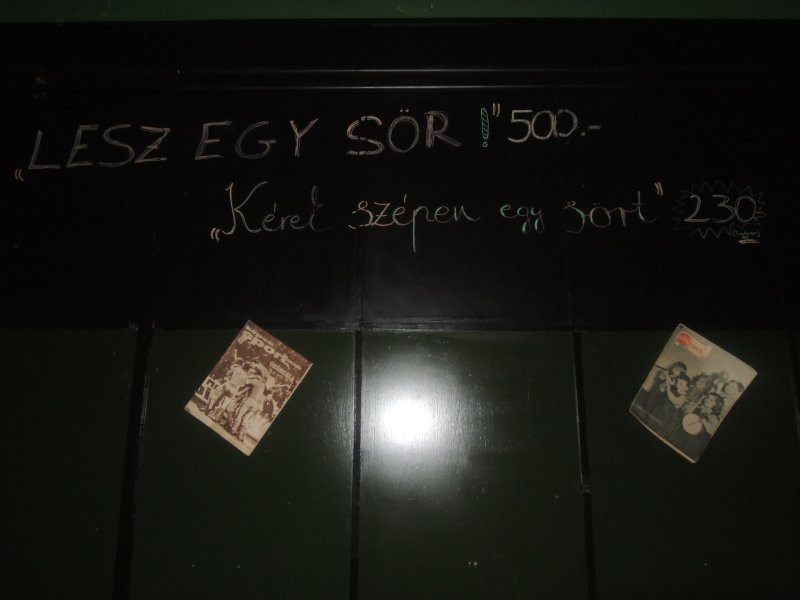 „LESZ EGY SÖR!" 500.-
„Kérek szépen egy sört" 230.-